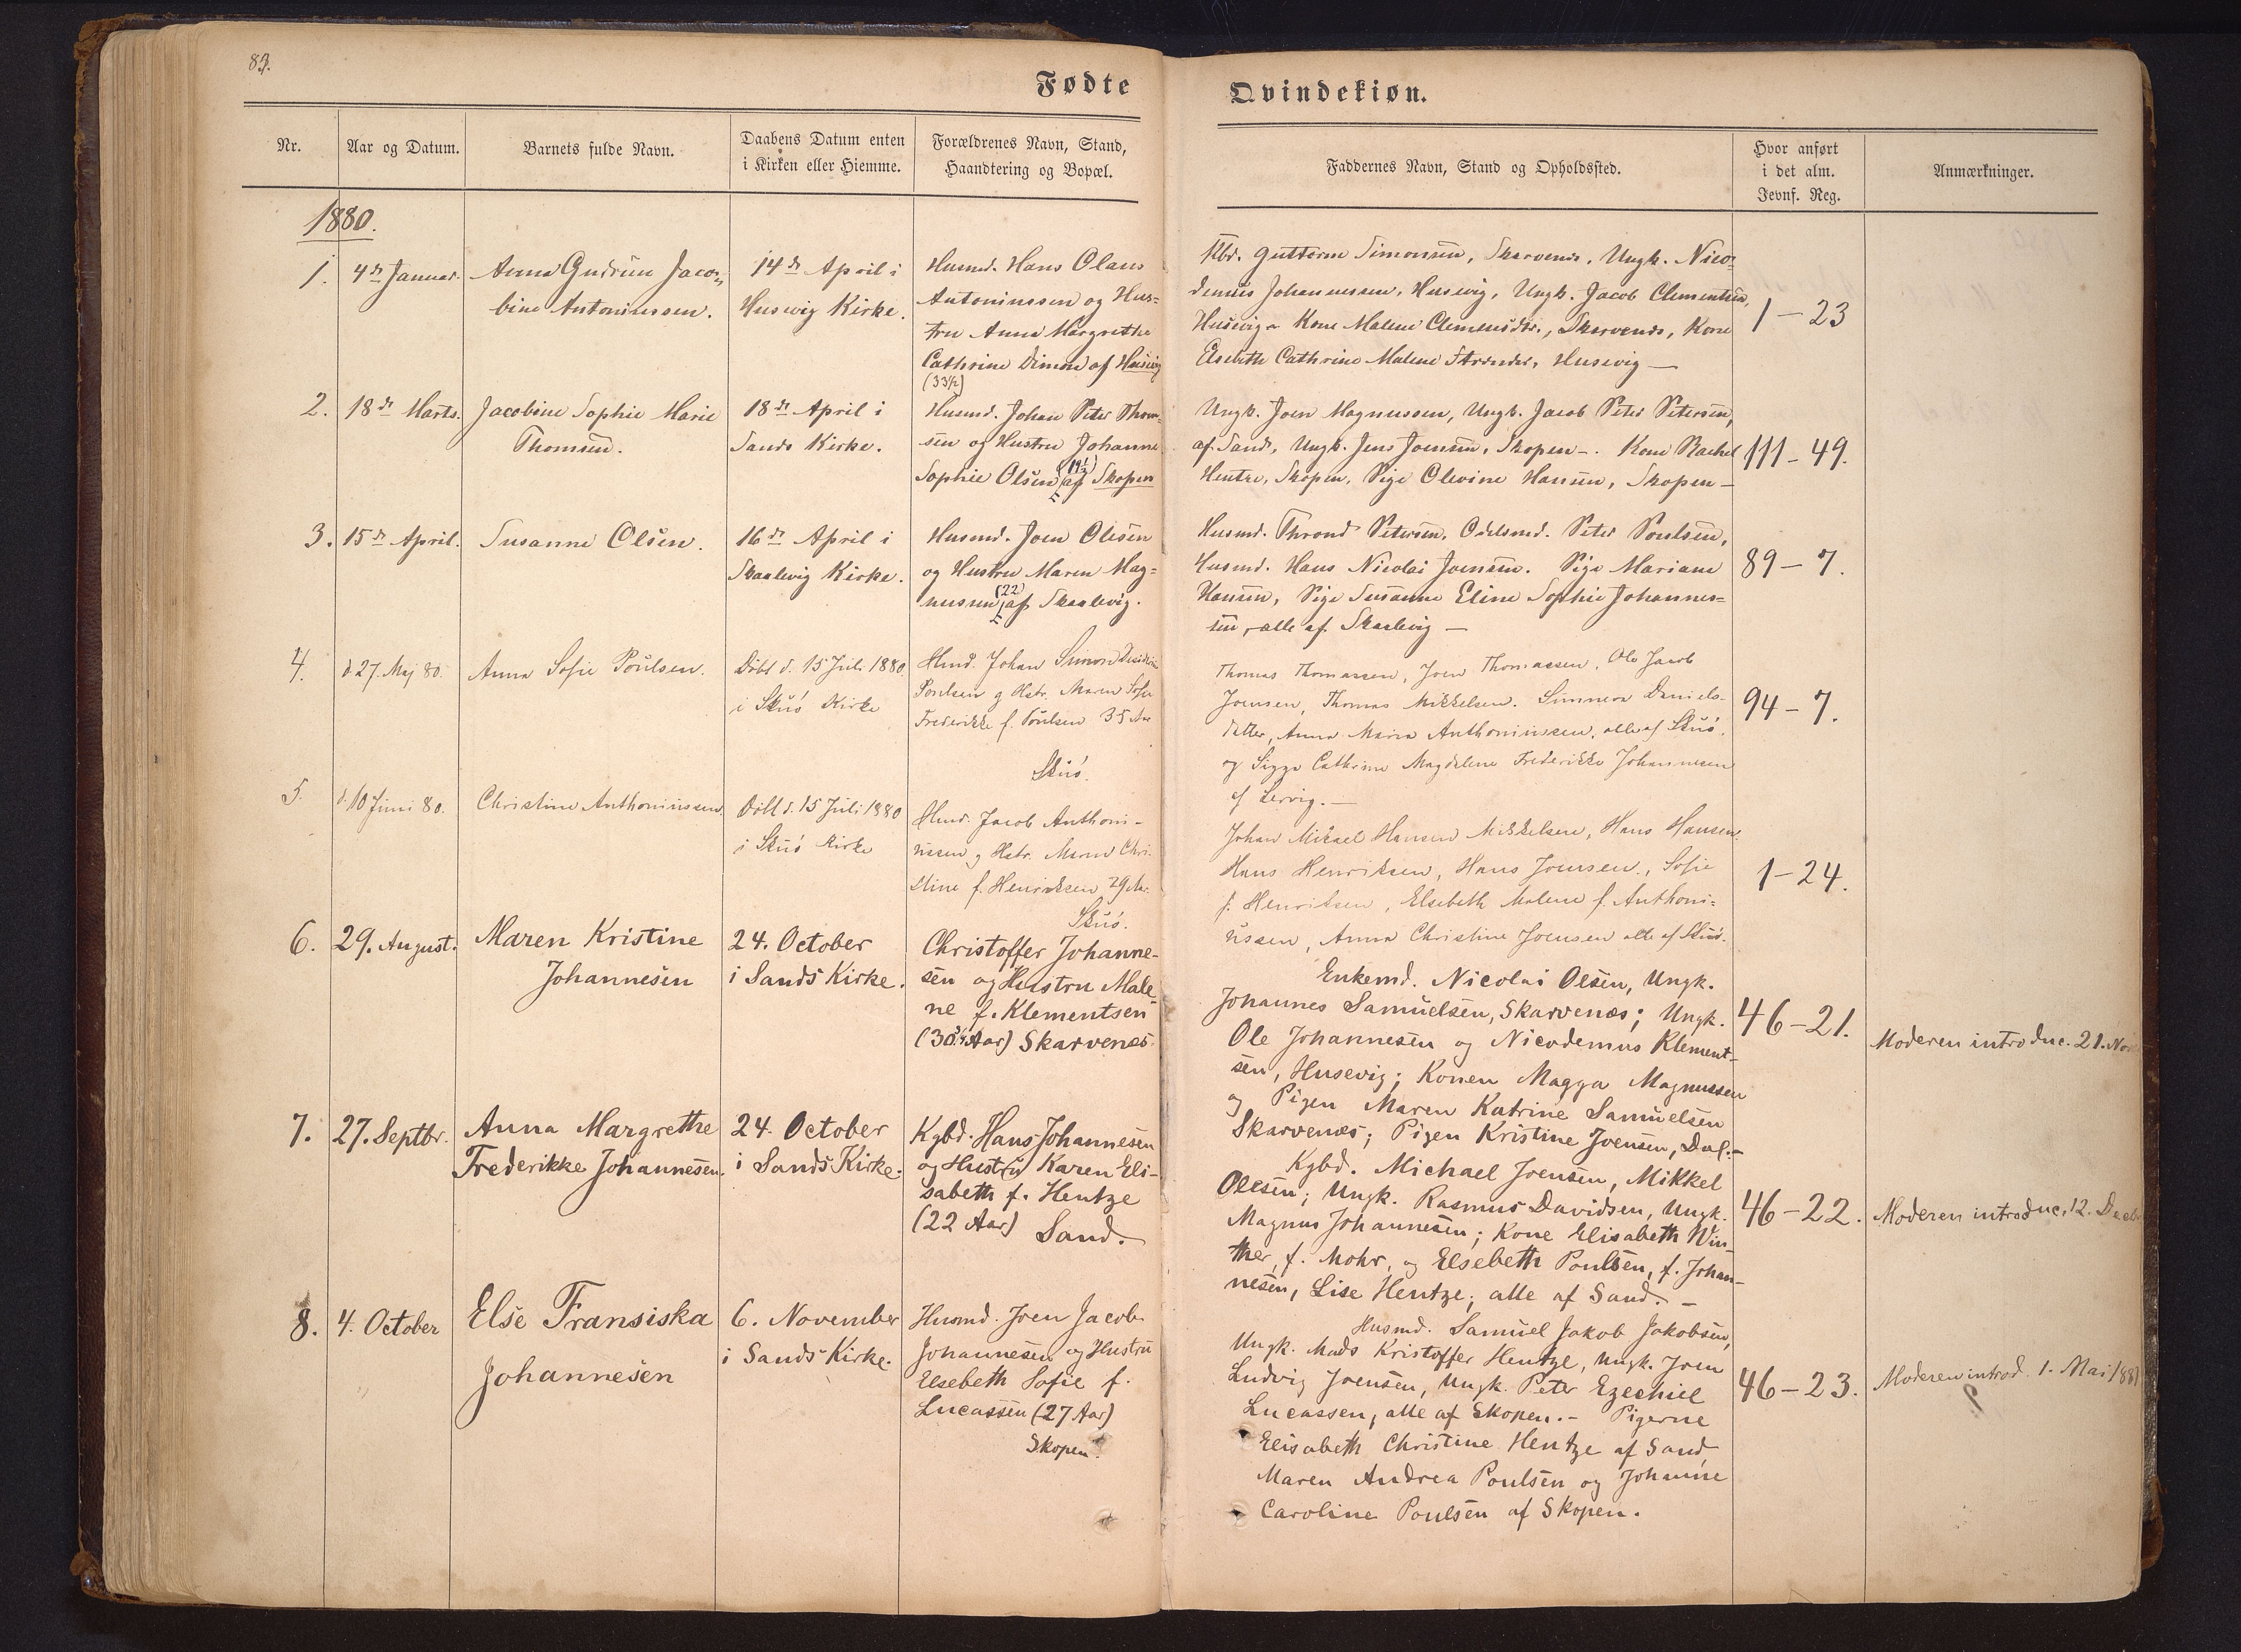 83.
Fødte
Qvindekiøn.
Nr.
Aar og Datum.
Barnets fulde Navn.
Daabens Datum enten
i Kirken eller Hiemme.
Forældrenes Navn, Stand,
Haandtering og Bopæl.
Faddernes Navn, Stand og Opholdssted.
Hvor anført
i det alm.
Jevnf. Reg.
Anmærkninger.
1880.
1.
4de Januar.
Anna Gudrun Jaco=
bine Antoniussen.
14de April i
Husevig Kirke.
Husmd. Hans Olaus
Antoniussen og Hus=
tru Anna Margrethe
Cathrine Dimon af Husevig
(33½)
Kbd. Guttorm Simonsen, Skarvenæs, Ungk. Nico=
demus Johannessen, Husevig, Ungk. Jacob Clementsen,
Husevig - Kone Malene Clemensdtr., Skarvenæs, Kone
Elsebeth Cathrine Malene Husevig —
1 — 23
2.
18de Marts.
Jacobine Sophie Marie
Thomsen.
18de April i
Sands Kirke.
Husmd. Johan Peter Thom=
sen og Hustru Johanne
Sophie Olsen (19½) af Skopen
Ungk. Joen Magnussen, Ungk. Jacob Peter Petersen,
af Sand, Ungk. Jens Joensen, Skopen -. Kone Rachel
Hentze, Skopen, Pige Olevine Hansen, Skopen —
111 — 49.
3.
15de April.
Susanne Olsen.
16de April i
Skaalevig Kirke.
Husmd. Joen Olesen
og Hustru Maren Mag=
nussen (22) af Skaalevig.
Husmd. Thrond Petersen, Odelsmd. Peter Poulsen,
Husmd. Hans Nicolai Joensen. Pige Mariane
Hansen, Pige Susanne Eline Sophie Johannes=
sen, alle af Skaalevig —
89 — 7.
4.
d. 27. Maj 80.
Anna Sofie Poulsen.
Døbt d. 15 Juli 1880
i Skuø Kirke
Hmd. Johan Simon
Poulsen og Hstr. Maren Sofie
Frederikke f. Poulsen 35 Aar
Skuø.
Thomas Thomassen, Joen Thomassen, Ole Jacob
Joensen, Thomas Mikkelsen. Sunneva Daniels-
datter, Anna Maria Anthoniussen, alle af Skuø.
og Sigga Cathrine Magdalene Frederikke Johannesen
af Lervig. —
94 — 7.
5.
d. 10 Juni 80.
Christine Anthoniussen.
Døbt d. 15 Juli 1880
i Skuø Kirke
Hmd. Jacob Anthoni-
ussen og Hstr. Maren Chri-
stine f. Henriksen 29 Aar.
Skuø.
Johan Mikael Hansen Mikkelsen, Hans Hansen.
Hans Henriksen, Hans Joensen., Sofie
f. Henriksen, Elsebeth Malene f. Anthoni=
ussen, Anna Christine Joensen alle af Skuø.
1 — 24.
6.
29. August.
Maren Kristine
Johannesen
24. October
i Sands Kirke.
Christoffer Johanne-
sen og Hustru Male-
ne f. Klementsen
(30¾ Aar) Skarvenæs.
Enkemd. Nicolai Olsen, Ungk.
Johannes Samuelsen, Skarvenæs; Ungk.
Ole Johannesen og Nicodemus Klement-
sen, Husevig; Konen Magga Magnussen
og Pigen Maren Katrine Samuelsen
Skarvenæs; Pigen Kristine Joensen, Dal.-
46 — 21.
Moderen introduc. 21. Nov
7.
27. Septbr.
Anna Margrethe
Frederikke Johannesen.
24. October
i Sands Kirke.
Kgbd. Hans Johannesen
og Hustru Karen Eli-
sabeth f. Hentze
(22 Aar) Sand.
Kgbd. Michael Joensen, Mikkel
Olesen; Ungk. Rasmus Davidsen, Ungk.
Magnus Johannesen; Kone Elisabeth Win-
ther, f. Mohr, og Elsebeth Poulsen, f. Johan-
nesen, Lise Hentze; alle af Sand. -
46 — 22.
Moderen introduc. 12. Decb
8.
4. October
Else Fransiska
Johannesen
6. November
i Sands Kirke.
Husmd. Joen Jacob
Johannesen og Hustru
Elsebeth Sofie f.
Lucassen (27 Aar)
Skopen.
Husmd. Samuel Jakob Jakobsen,
Ungk. Mads Kristoffer Hentze, Ungk. Joen
Ludvig Joensen, Ungk. Peter Ezechiel
Lucassen, alle af Skopen. - Pigerne
Elisabeth Christine Hentze af Sand,
Maren Andrea Poulsen og Johanne
Caroline Poulsen af Skopen.
46 — 23.
Moderen introd. 1. Mai 1881